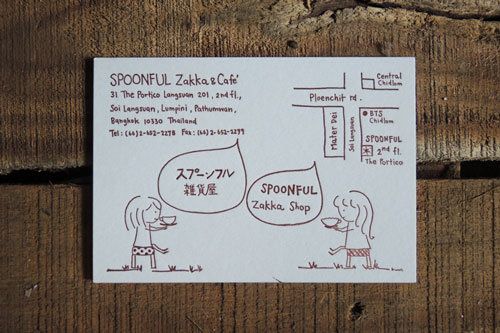 SPOONFUL Zakka & Café
31 The Portico Langsuan 201, 2nd fl.,
Soi Langsuan, Lumpini, Pathumwan,
Bangkok 10330 Thailand
Tel: (66) 2-652-2278 Fax: (66) 2-652-2279
Central
Chidlom
Ploenchit rd.
BTS
Chidlom
Mater Dei
Soi Langsuan
SPOONFUL
2nd fl.
The Portico
スプーンフル
雑貨屋
SPOONFUL
Zakka Shop